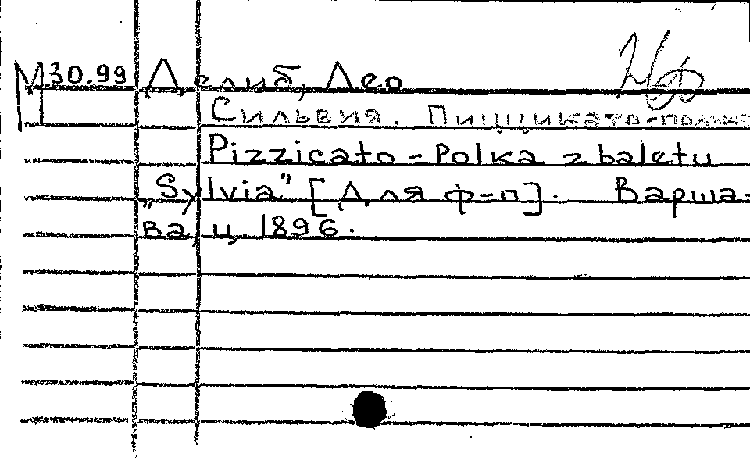 М30.99 Делиб, Лео
Сильвия. Пиццикато-полька
Pizzicato-Polka z baletu
„Sylvia" [Для ф-п]. Варша-
ва, ц. 1896.